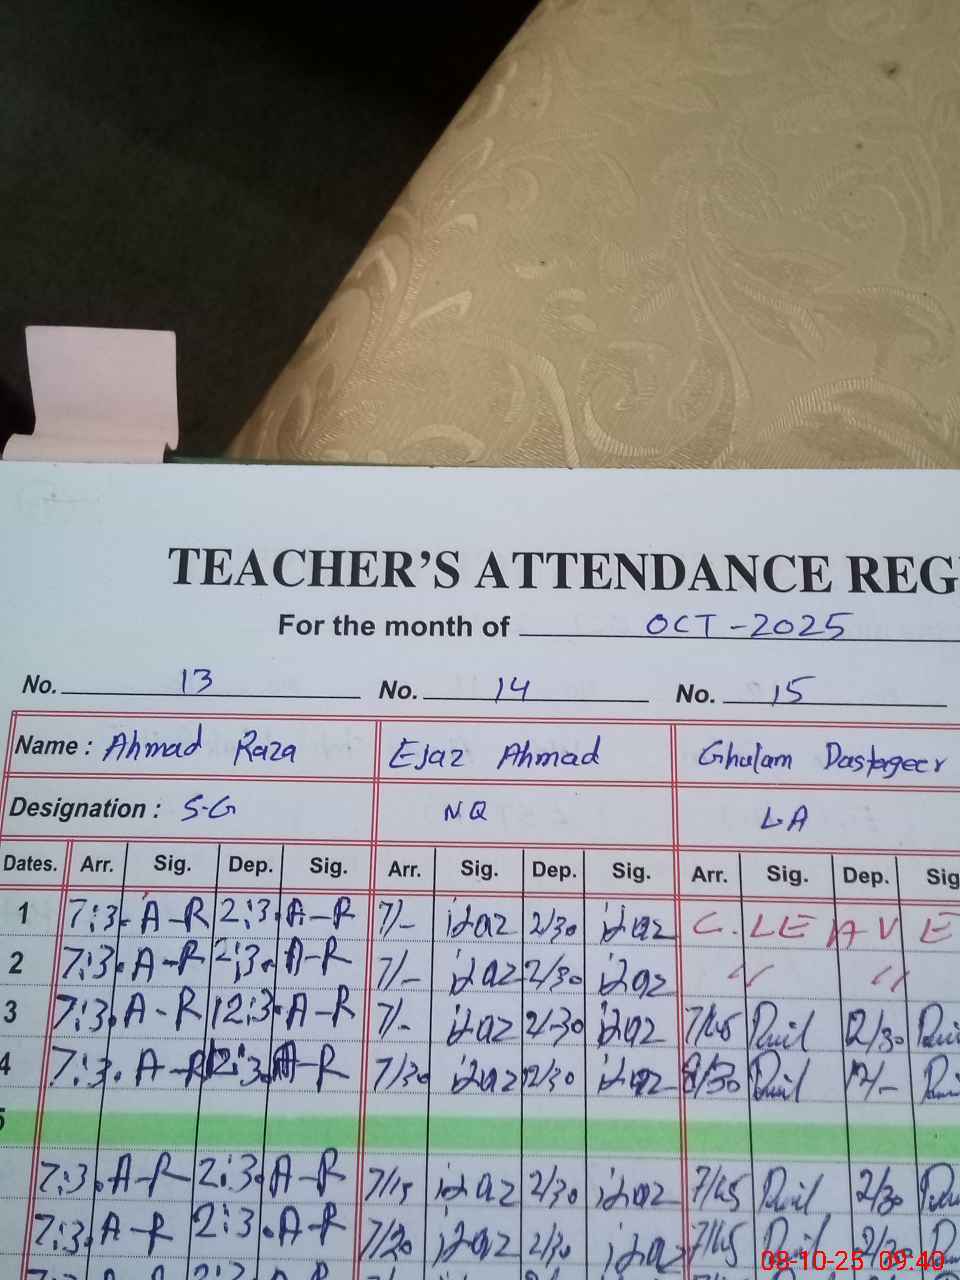 TEACHER'S ATTENDANCE REG
For the month of OCT-2025
No. 13 No. 14 No. 15
Name : Ahmad Raza Ejaz Ahmad Ghulam Dastageer
Designation : S-G N.Q L.A
Dates. Arr. Sig. Dep. Sig. Arr. Sig. Dep. Sig. Arr. Sig. Dep. Sig
1 7:3. A-R 2:3. A-R 7/- ijaz 2/30 ijaz C. LEAVE
2 7:3. A-R 2:3. A-R 7/- ijaz 2/30 ijaz " "
3 7:3. A-R 12:3. A-R 7/- ijaz 2/30 ijaz 7/45 12/30
4 7:3. A-R 12:3. A-R 7/30 ijaz 12/30 ijaz 8/30 12/-
5
7:3. A-R 2:3. A-R 7/15 ijaz 2/30 ijaz 7/45 2/30
7:3. A-R 2:3. A-R 7/20 ijaz 2/30 ijaz 7/45 2/30
08-10-25 09:40